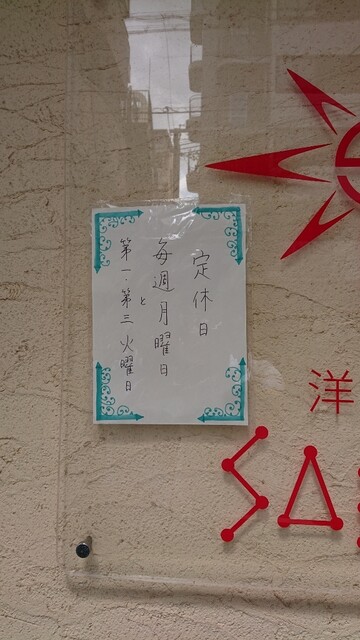 定休日
毎週月曜日
と
第一・第三火曜日
洋
SA